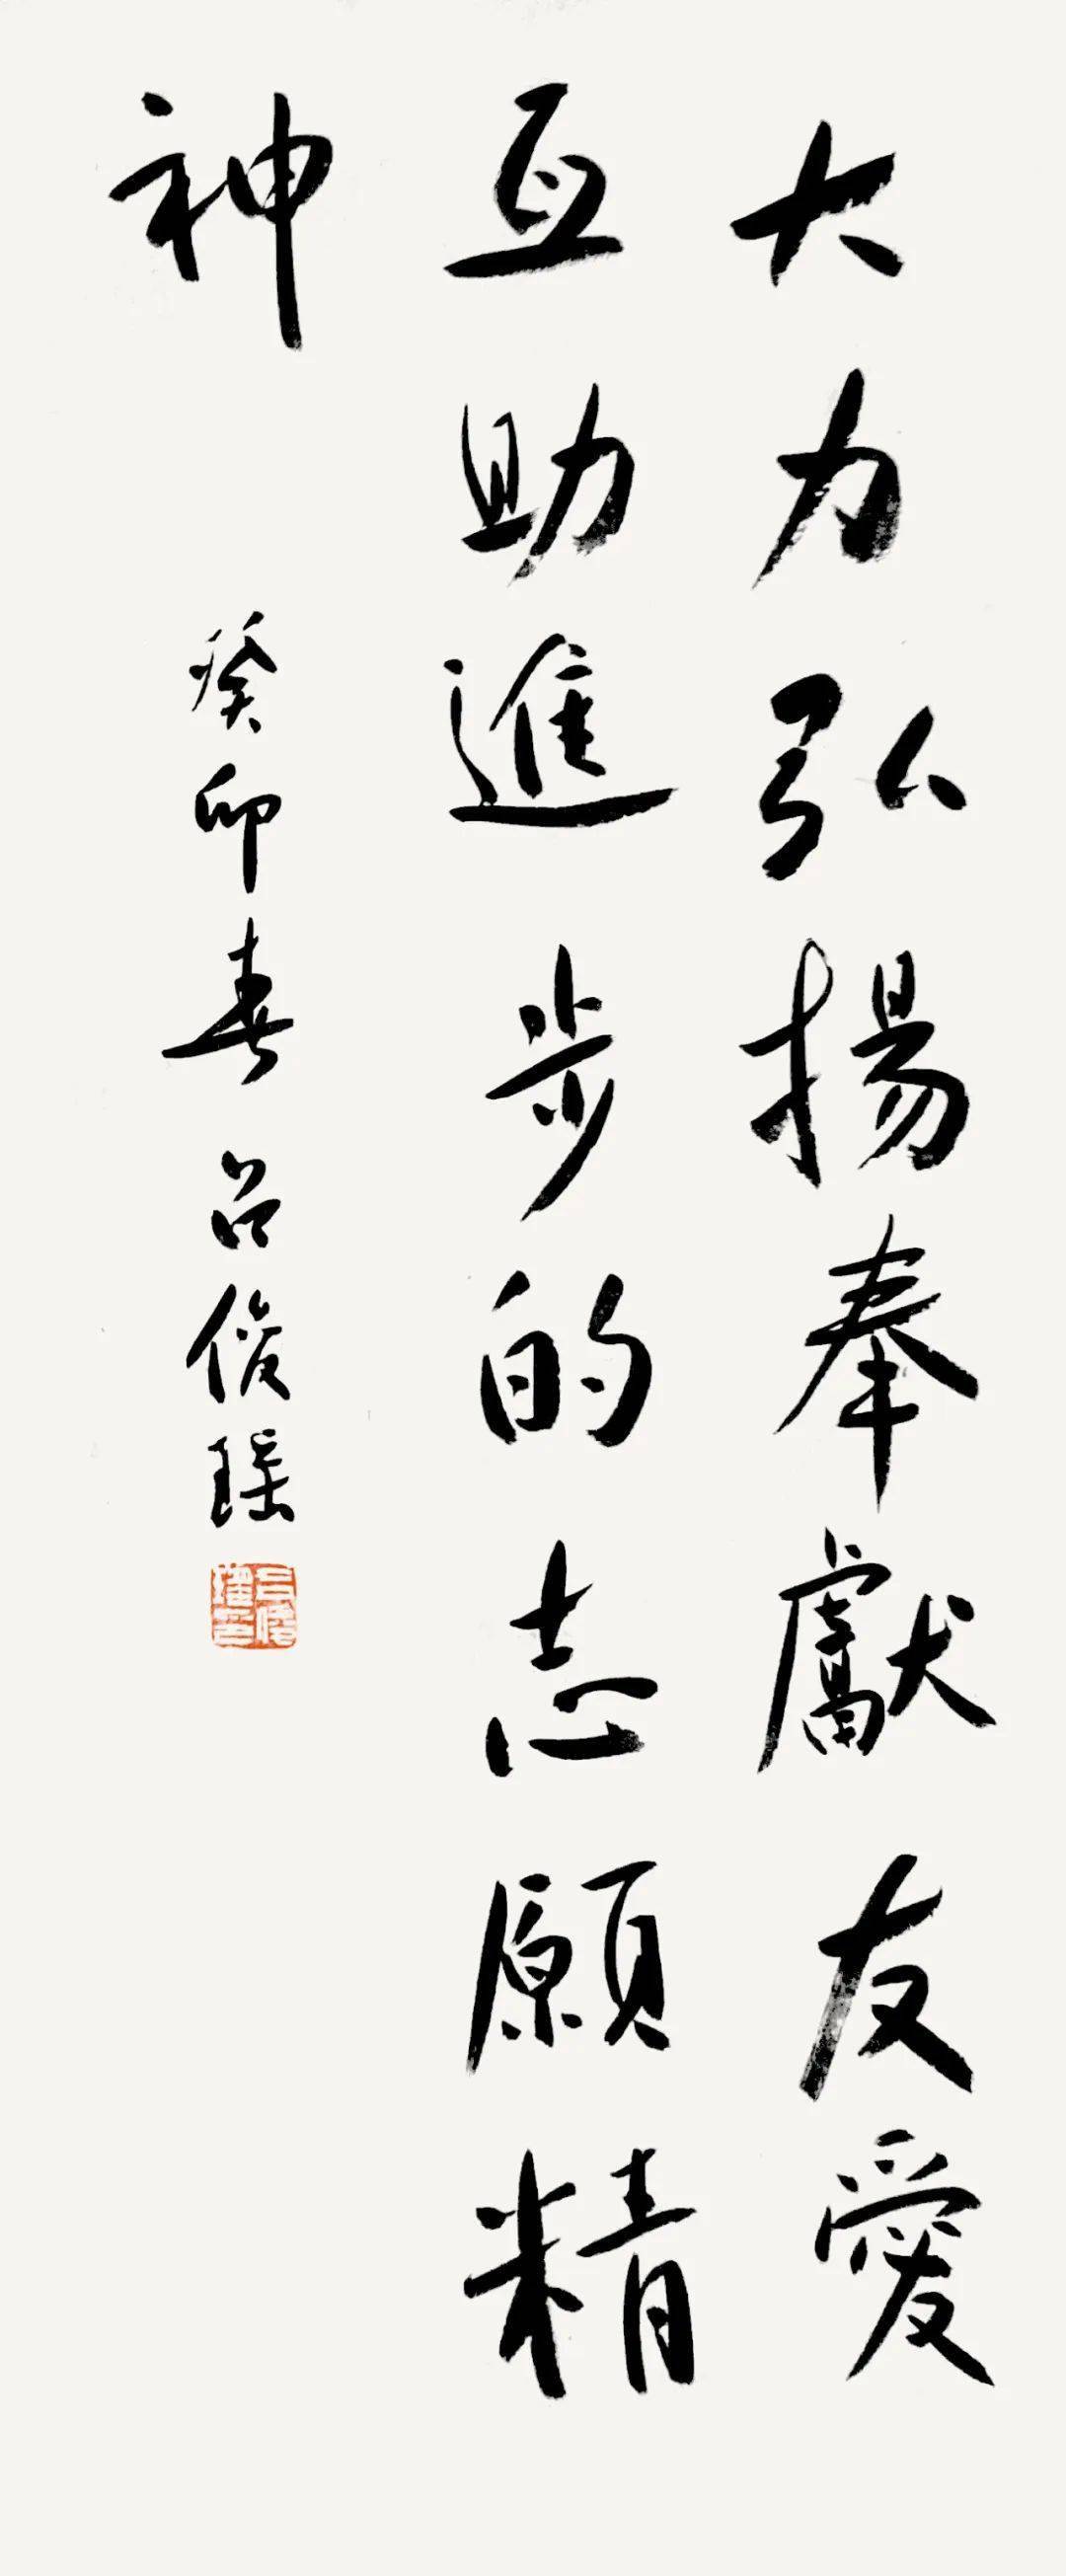 大力弘揚奉獻友愛
互助進步的志願精
神
癸卯春 呂俊瑤